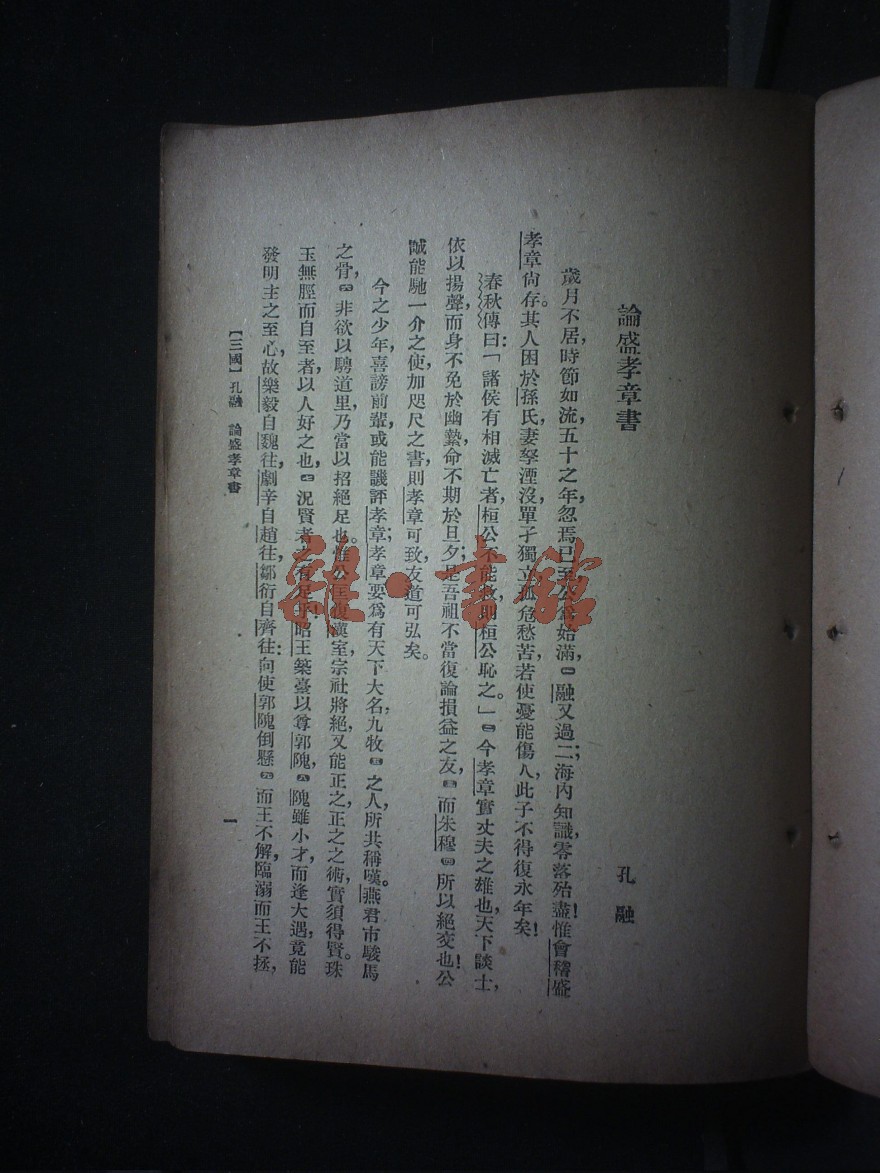 論盛孝章書
孔融
歲月不居，時節如流，五十之年，忽焉已至，公爲始滿，㊀融又過二；海內知識，零落殆盡，惟會稽盛
孝章尙存。其人困於孫氏，妻孥湮沒，單孑獨立，孤危愁苦，若使憂能傷人，此子不得復永年矣！
春秋傳曰：「諸侯有相滅亡者，桓公不能救，則桓公恥之。」㊁今孝章實丈夫之雄也，天下談士，
依以揚聲，而身不免於幽縶，命不期於旦夕；是吾祖不當復論損益之友，㊂而朱穆㊃所以絕交也！公
誠能馳一介之使，加咫尺之書，則孝章可致，友道可弘矣。
今之少年，喜謗前輩，或能譏評孝章；孝章要爲有天下大名，九牧㊄之人，所共稱嘆。燕君市駿馬
之骨，㊅非欲以騁道里，乃當以招絕足也。惟公匡復漢室，宗社將絕，又能正之，正之之術，實須得賢。珠
玉無脛而自至者，以人好之也，㊆況賢者之有足乎！昭王築臺以尊郭隗，㊇隗雖小才，而逢大遇，竟能
發明主之至心，故樂毅自魏往，劇辛自趙往，鄒衍自齊往；向使郭隗倒懸㊈而王不解，臨溺而王不拯，
【三國】孔融　論盛孝章書
一
雜·書館